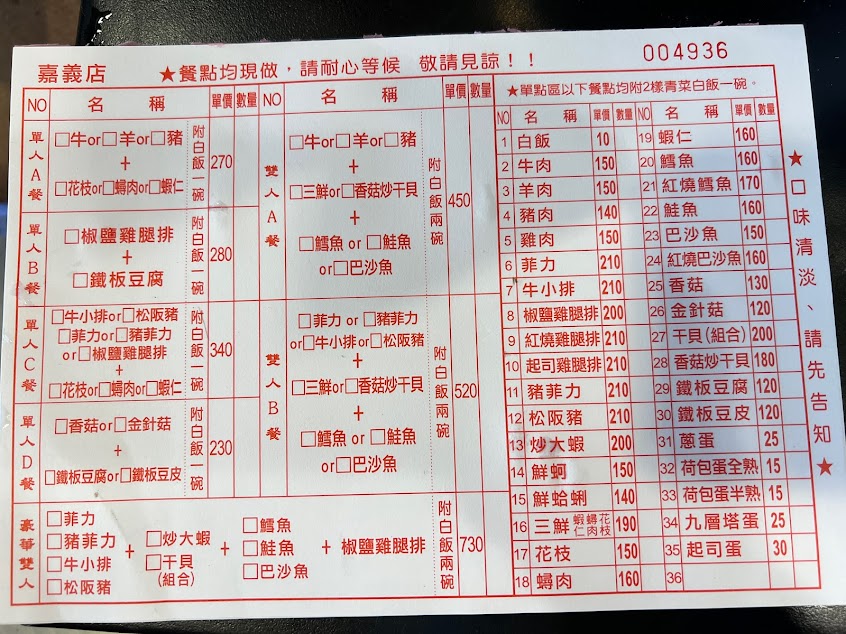 嘉義店
★餐點均現做，請耐心等候 敬請見諒！！
004936
NO 名稱 單價 數量 NO 名稱 單價 數量
單人A餐
□牛or□羊or□豬
+
□花枝or□蟳肉or□蝦仁
附白飯一碗
270
單人B餐
□椒鹽雞腿排
+
□鐵板豆腐
附白飯一碗
280
單人C餐
□牛小排or□松阪豬
□菲力or□豬菲力
or□椒鹽雞腿排
+
□花枝or□蟳肉or□蝦仁
附白飯一碗
340
單人D餐
□香菇or□金針菇
+
□鐵板豆腐or□鐵板豆皮
附白飯一碗
230
雙人A餐
□牛or□羊or□豬
+
□三鮮or□香菇炒干貝
+
□鱈魚 or □鮭魚
or□巴沙魚
附白飯兩碗
450
雙人B餐
□菲力 or □豬菲力
or□牛小排or□松阪豬
+
□三鮮or□香菇炒干貝
+
□鱈魚 or □鮭魚
or□巴沙魚
附白飯兩碗
520
豪華雙人
□菲力
□豬菲力
□牛小排
□松阪豬
+
□炒大蝦
□干貝
(組合)
+
□鱈魚
□鮭魚
□巴沙魚
+ 椒鹽雞腿排
附白飯兩碗
730
★單點區以下餐點均附2樣青菜白飯一碗。
NO 名稱 單價 數量 NO 名稱 單價 數量
1 白飯 10
2 牛肉 150
3 羊肉 150
4 豬肉 140
5 雞肉 150
6 菲力 210
7 牛小排 210
8 椒鹽雞腿排 200
9 紅燒雞腿排 210
10 起司雞腿排 210
11 豬菲力 210
12 松阪豬 210
13 炒大蝦 200
14 鮮蚵 150
15 鮮蛤蜊 140
16 三鮮 蝦仁 蟳肉 花枝 190
17 花枝 150
18 蟳肉 160
19 蝦仁 160
20 鱈魚 160
21 紅燒鱈魚 170
22 鮭魚 160
23 巴沙魚 150
24 紅燒巴沙魚 160
25 香菇 130
26 金針菇 120
27 干貝(組合) 200
28 香菇炒干貝 180
29 鐵板豆腐 120
30 鐵板豆皮 120
31 蔥蛋 25
32 荷包蛋全熟 15
33 荷包蛋半熟 15
34 九層塔蛋 25
35 起司蛋 30
36
★口味清淡、請先告知★